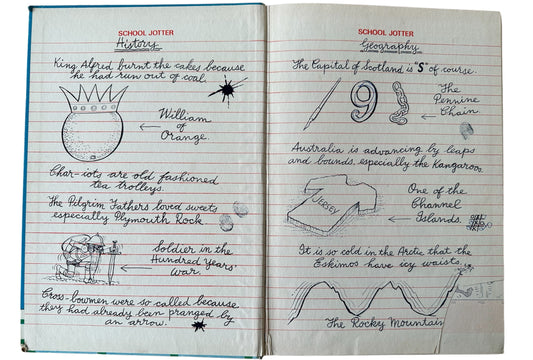 SCHOOL JOTTER
History
King Alfred burnt the cakes because
he had run out of coal.
William
of
Orange.
Char-iots are old fashioned
tea trolleys.
The Pilgrim Fathers loved sweets
especially Plymouth Rock.
Soldier in the
Hundred Years'
War
Cross-bowmen were so called because
they had already been pranged by
an arrow.
SCHOOL JOTTER
Geography
The Capital of Scotland is "S" of course.
The
Pennine
Chain.
Australia is advancing by leaps
and bounds, especially the Kangaroos.
JERSEY
One of the
Channel
Islands.
It is so cold in the Arctic that the
Eskimos have icy waists.
The Rocky Mountain